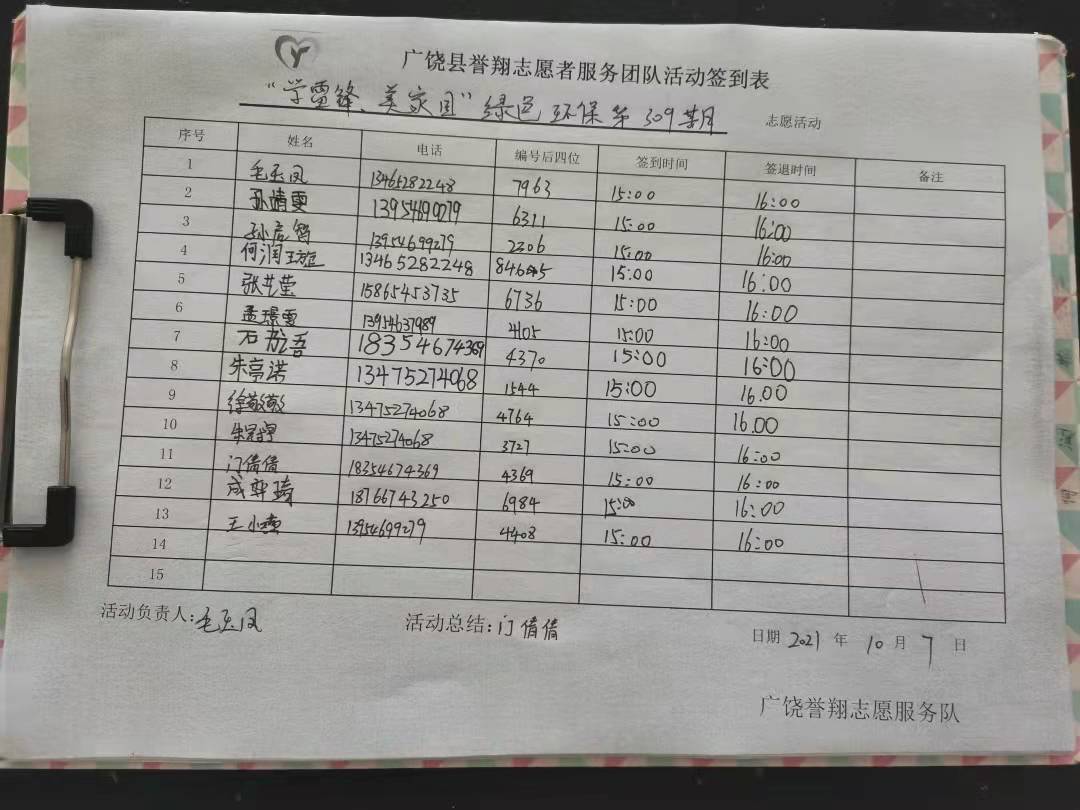 广饶县誉翔志愿者服务团队活动签到表
“学雷锋、美家园”绿色环保第309期 志愿活动
序号 姓名 电话 编号后四位 签到时间 签退时间 备注
1 毛玉凤 13465282248 7963 15:00 16:00
2 孙靖雯 13954699279 6311 15:00 16:00
3 孙彦智 13954699279 2306 15:00 16:00
4 何润 13465282248 15:00 16:00
5 张艺莹 15865453735 6736 15:00 16:00
6 孟璟雯 13954637989 4105 15:00 16:00
7 石 吾 18354674369 4370 15:00 16:00
8 朱亭诺 13475274068 1544 15:00 16.00
9 徐敬敬 13475274068 4764 15:00 16.00
10 朱 13475274068 3727 15:00 16:00
11 门倩倩 18354674369 4369 15:00 16:00
12 成 琦 18766743250 6984 15:00 16:00
13 王小燕 13954699279 4408 15:00 16:00
14
15
活动负责人:毛玉凤 活动总结:门倩倩 日期 2021 年 10 月 7 日
广饶誉翔志愿服务队